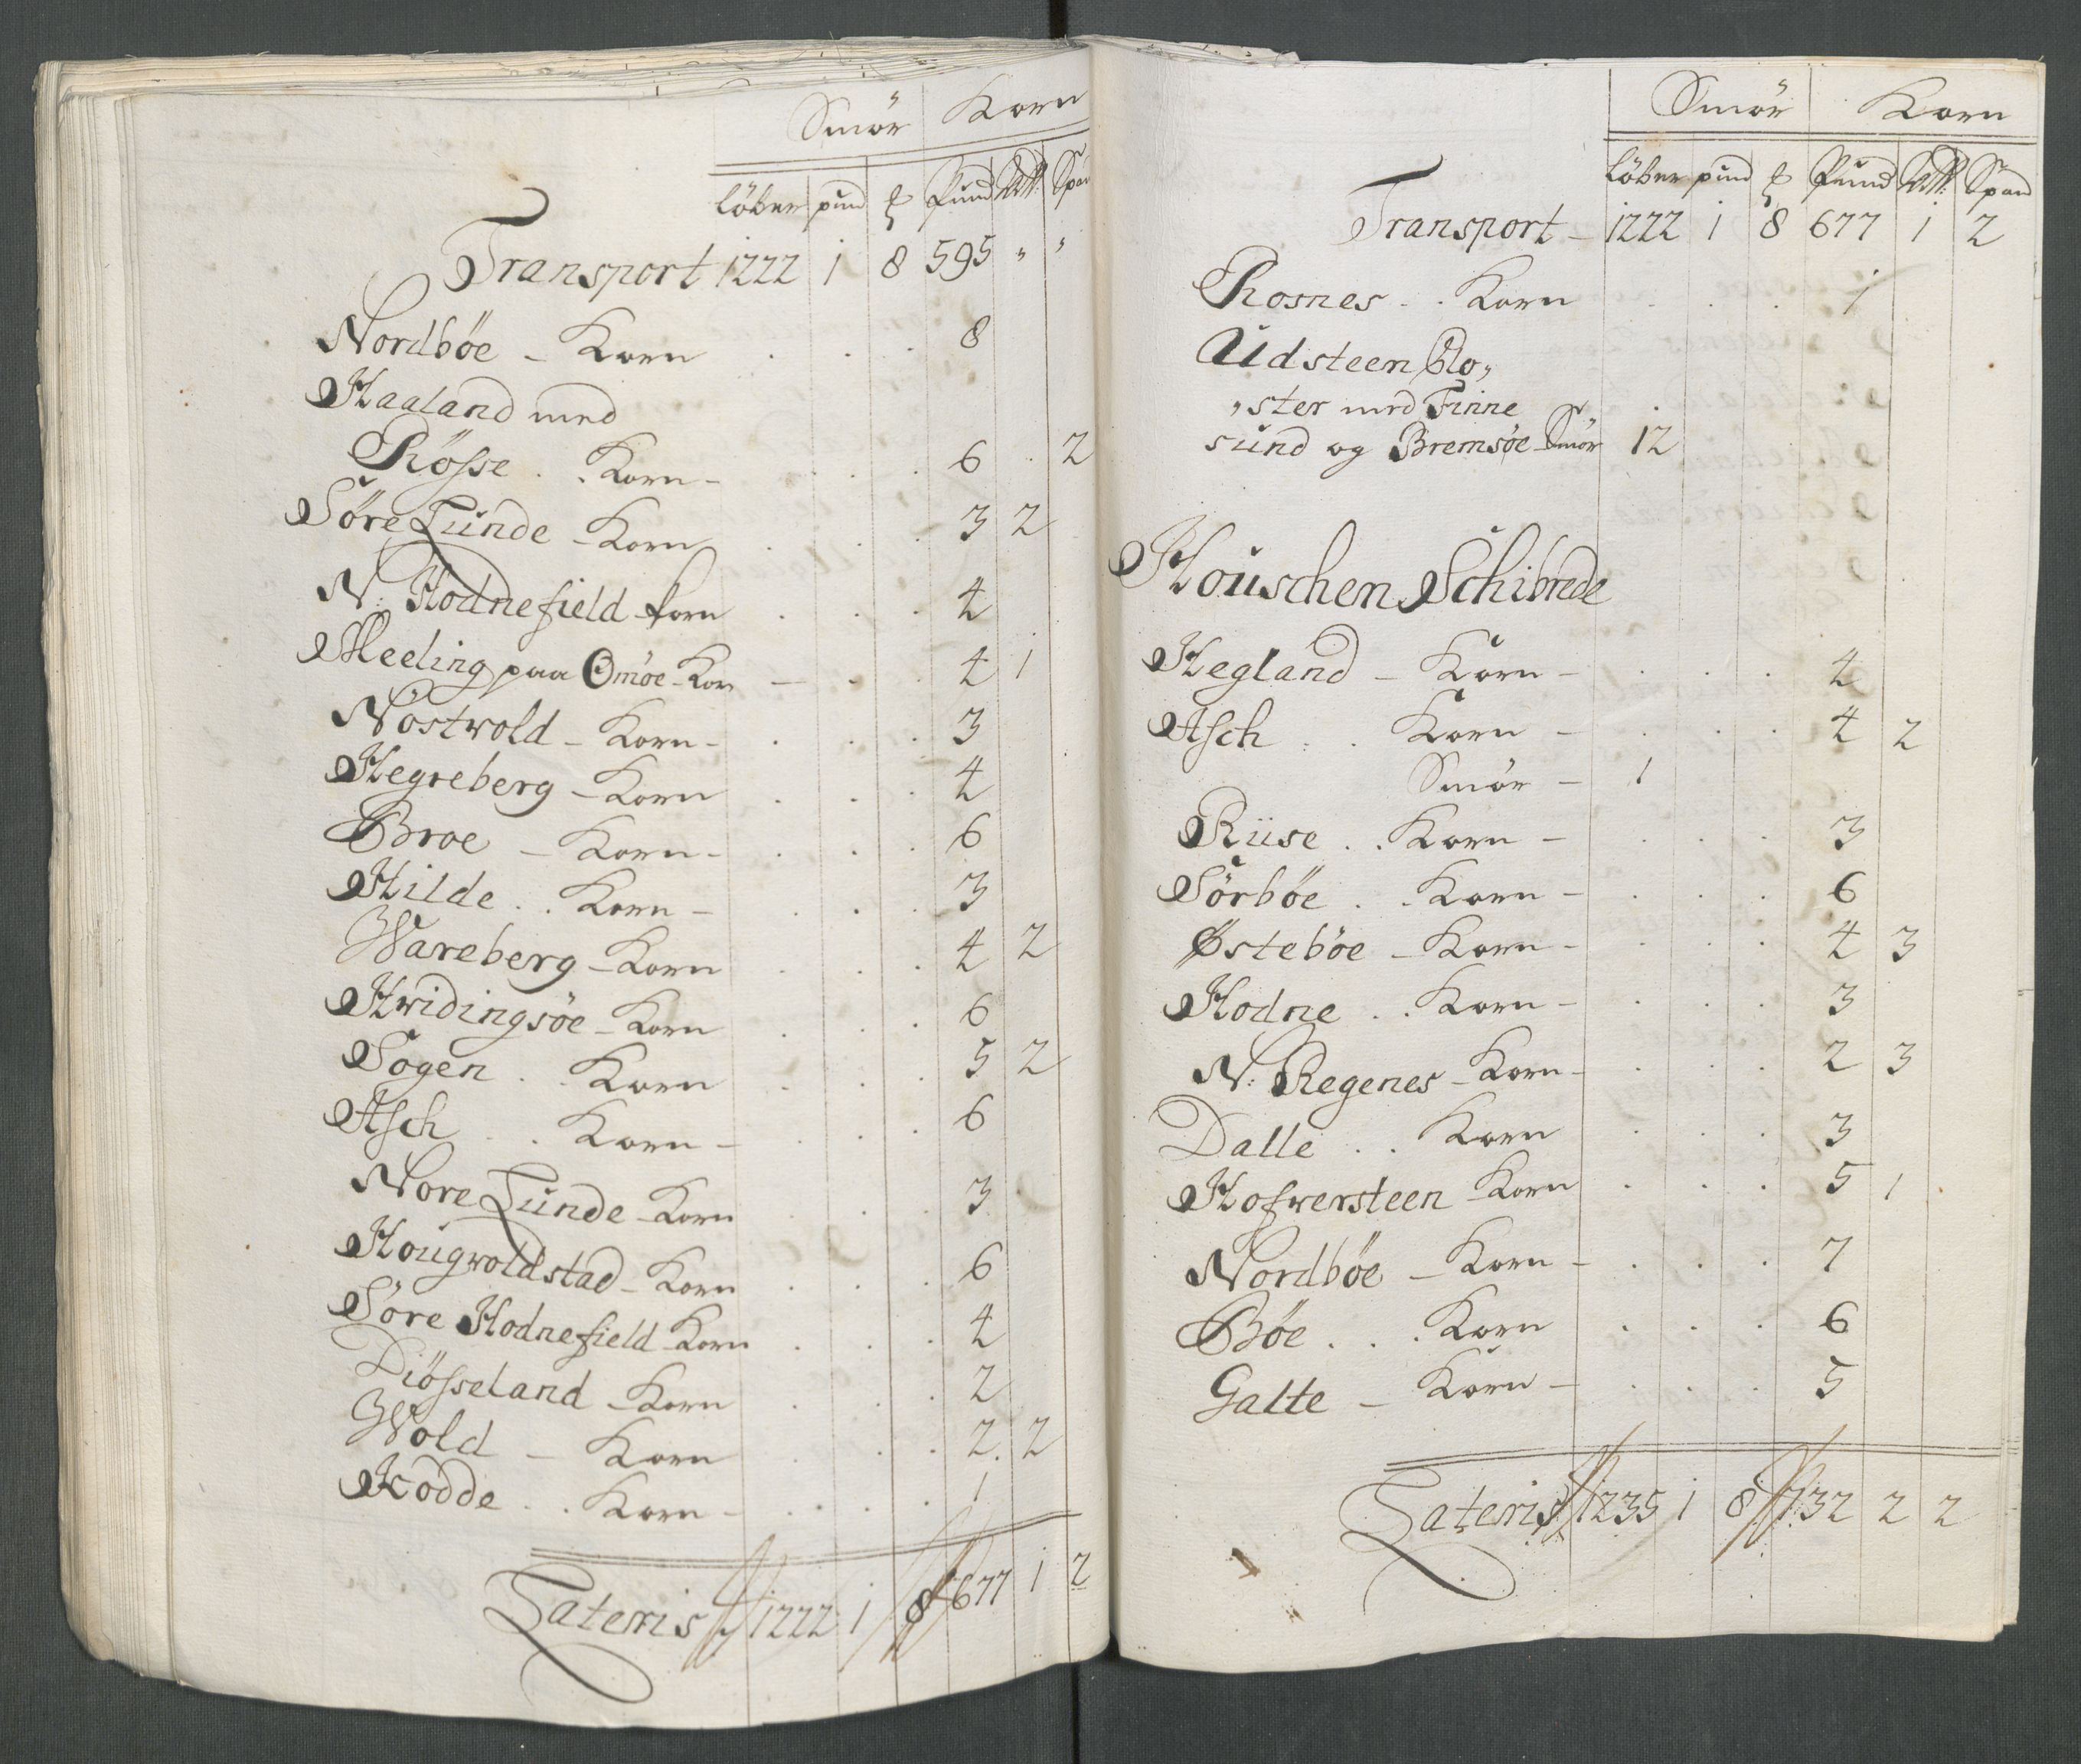 Smör Korn
löber pund ℔ Pund Mtt: Span
Transport 1222 1 8 595 " "
Nordböe - Korn . . . 8
Haaland med
Rösse . . Korn - . . . 6 . 2
Söre Lunde - Korn . . . 3 2
N: Hodnefield Korn . . . 4
Meeling paa Omöe - Korn - . . 4 1
Nöstwold - Korn - . . . 3
Hegreberg - Korn . . . 4
Broe - Korn - . . . 6
Hilde . . Korn - . . . 3
Wareberg - Korn . . . 4 2
Hvidingsöe - Korn . . . 6
Sogen . . Korn . . . 5 2
Asch . . Korn - . . . 6
Nore Lunde - Korn . . . 3
Hougwoldstad - Korn . . . 6
Söre Hodnefield - Korn . . . 4
Diösseland - Korn . . . 2
Wold - Korn . . . 2. 2
Kodde . . Korn - . . . 1
Lateris 1222 1 8 677 1 2
Smör Korn
löber pund ℔ Pund Mtt: Spand
Transport - 1222 1 8 677 1 2
Rosnes . . Korn . . . 1
Udsteen Clo,,
,,ster med Finne
sund og Bremsöe - Smör 12
Houschen Schibrede
Hegland - Korn - . . . 4
Asch . . Korn - . . . 4 2
Smör - 1
Riise . . Korn - . . . 3
Sörböe . . Korn - . . . 6
Østeböe - Korn - . . . 4 3
Hodne . . Korn - . . . 3
N: Regenes - Korn - . . . 2 3
Dalle . . Korn . . . 3
Hofwersteen - Korn . . . 5 1
Nordböe - Korn - . . . 7
Böe . . . Korn . . . 6
Galte - Korn - . . . 5
Lateris 1235 1 8 732 2 2